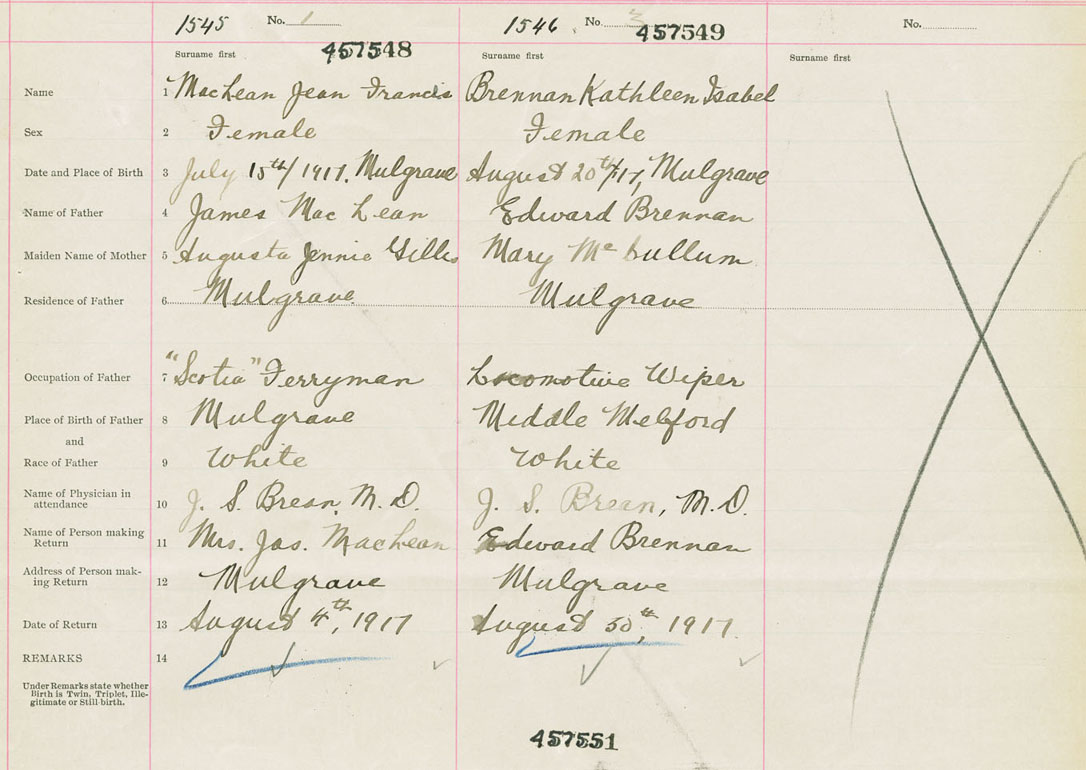 1545 No. 1 1546 No. 3 No.
457548 457549
Surname first Surname first Surname first
Name 1 MacLean Jean Francis Brennan Kathleen Isabel
Sex 2 Female Female
Date and Place of Birth 3 July 15th/1917. Mulgrave August 20th/17, Mulgrave
Name of Father 4 James MacLean Edward Brennan
Maiden Name of Mother 5 Augusta Jennie Gillis Mary McCullum
Residence of Father 6 Mulgrave Mulgrave
Occupation of Father 7 "Scotia" Ferryman Locomotive Wiper
Place of Birth of Father 8 Mulgrave Middle Melford
and
Race of Father 9 White White
Name of Physician in
attendance 10 J. S. Brean, M.D. J. S. Brean, M.D.
Name of Person making
Return 11 Mrs. Jas. MacLean Edward Brennan
Address of Person mak-
ing Return 12 Mulgrave Mulgrave
Date of Return 13 August 4th, 1917 August 30th, 1917.
REMARKS 14
Under Remarks state whether
Birth is Twin, Triplet, Ille-
gitimate or Still-birth.
457551